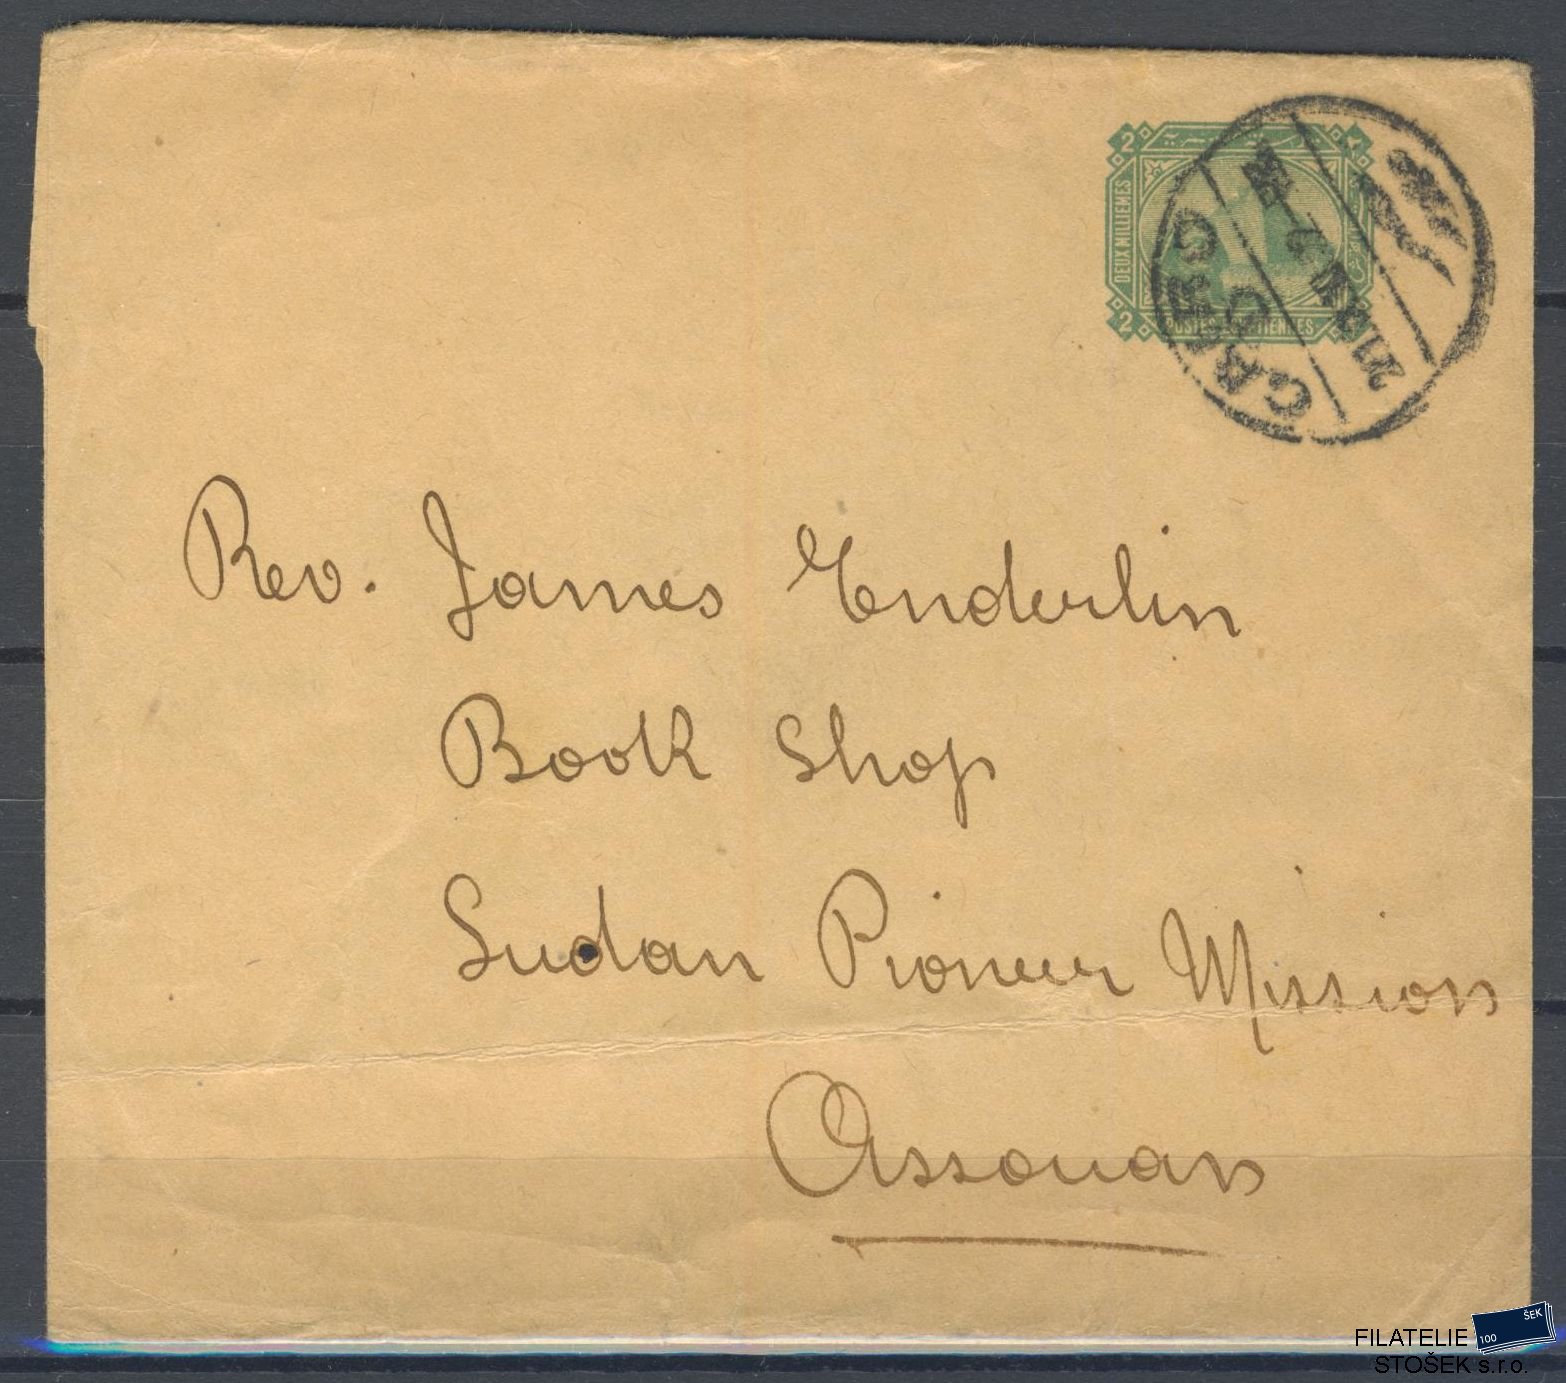 2
DEUX MILLIEMES
2
POSTES EGYPTIENNES
CAIRO
Rev. James Enderlin
Book Shop
Sudan Pioneer Mission
Assouan
ŠEK
100
FILATELIE
STOŠEK s.r.o.